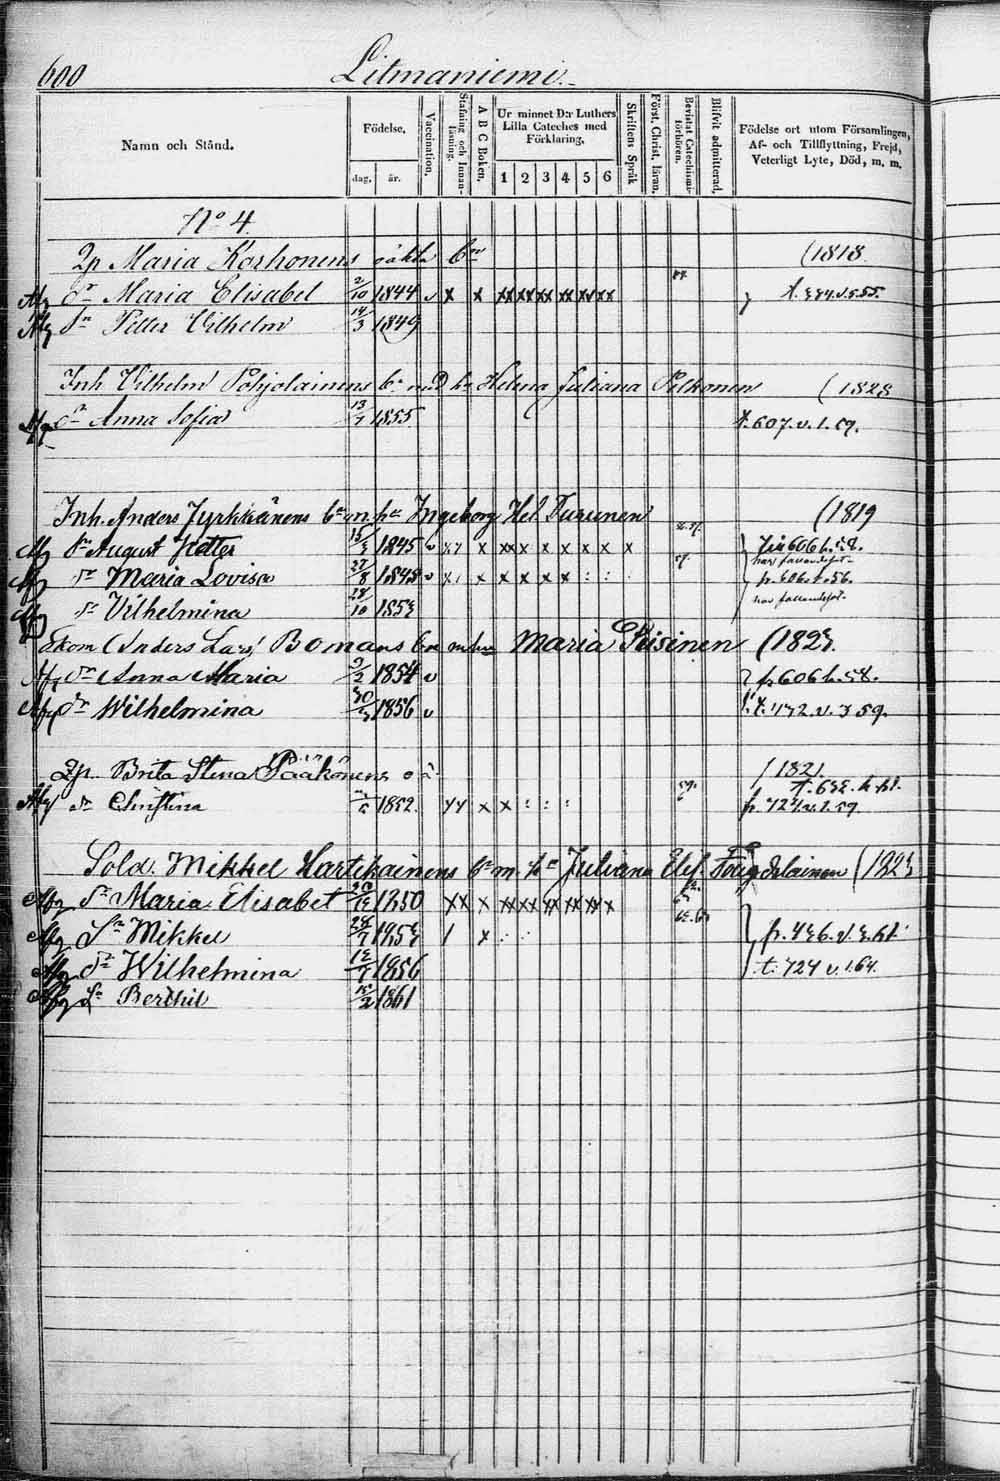 600 Litmaniemi.
Namn och Stånd.
Födelse,
dag, år.
Vaccination,
Stafning och Innanläsning.
A B C Boken,
Ur minnet D:r Luthers Lilla Cateches med Förklaring,
1 2 3 4 5 6
Skriftens Språk
Först. Christ. läran.
Bevistat Catechismiförhören.
Blifvit admitterad,
Födelse ort utom Församlingen, Af- och Tillflyttning, Frejd, Veterligt Lyte, Död, m. m.
No 4
Qp Maria Korhonens oäkta bn (1818
Afg dr Maria Elisabet 2/10 1844 v x x xx xx xx xx xx xx
Afg sn Petter Vilhelm 14/3 1849
Inh Vilhelm Pohjolainens bn med hu Helena Juliana Pitkonen (1828
Afg dr Anna Sofia 13/7 1855 t. 607. v. l. 59.
Inh. Anders Jyrkkänens bn m. hu Ingeborg Hel. Turunen (1819
Afg sn August Petter 1845 v x x xx x x x x x x
Afg dr Maria Lovisa 27/8 1848 v x x x x x : : :
Afg dr Vilhelmina 28/10 1853
Anders Lars Bomans bn m hu Maria Piisinen (1823.
Afg dr Anna Maria 2/2 1854 v p. 606 h. 58.
Afg dr Wilhelmina 1856 v
Qp. Brita Stina Pääkönens o ä. (1821.
Afg dr Christina 1852. x x : : :
Sold. Mikkel Hartikainens bn m. hu Juliana Elis. (1823
Afg dr Maria Elisabet 1850 xx x xx xx xx xx xx x
Afg sn Mikkel 1853 / x : :
Afg dr Wilhelmina 1856 t. 724 v. l. 64.
Afg sn Berthil 15/2 1861